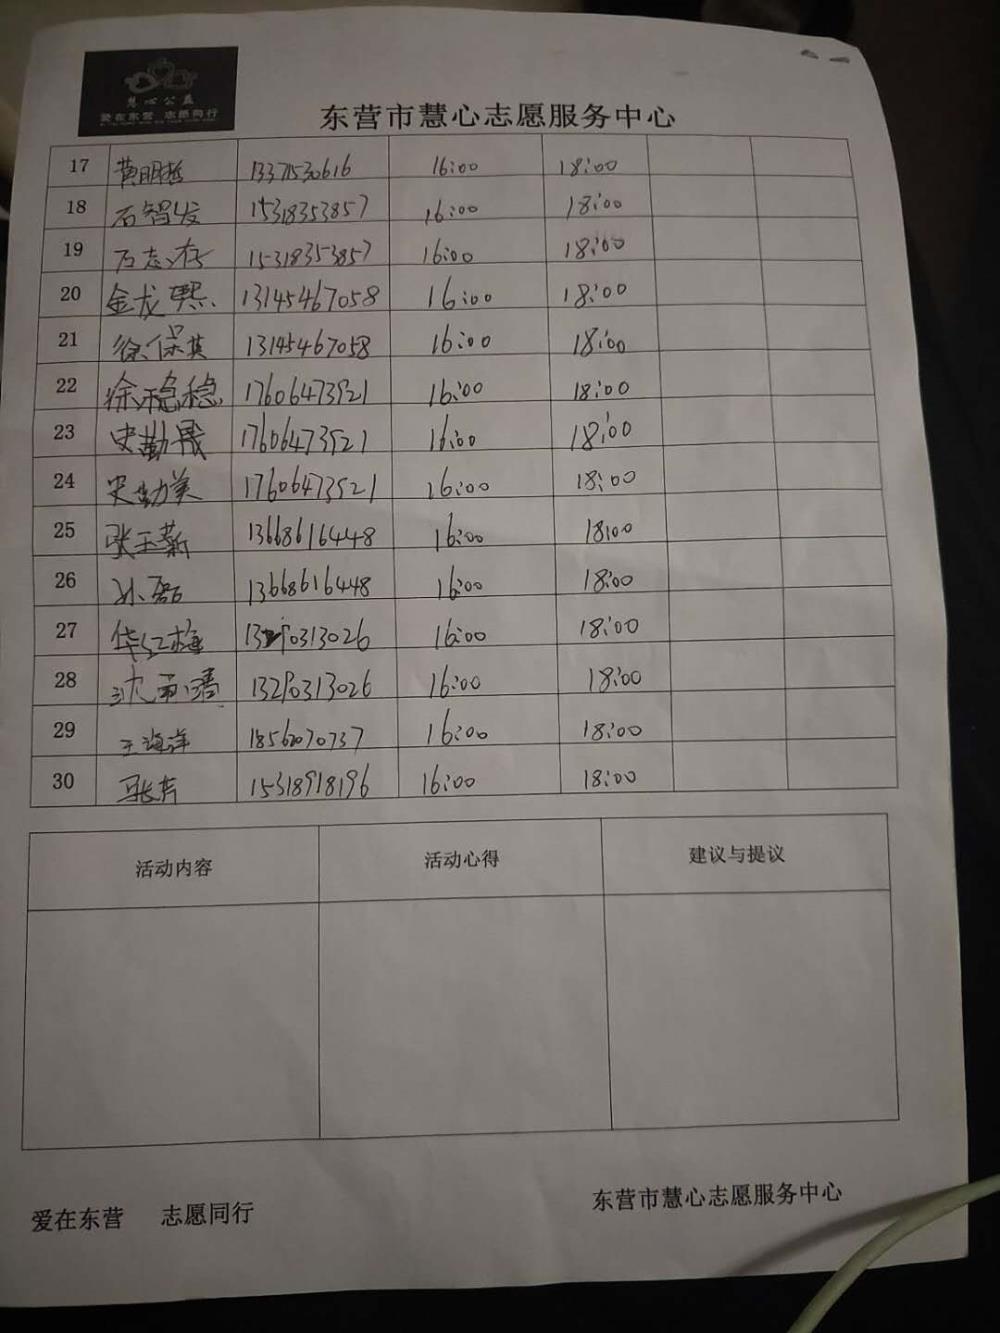 慧心公益
爱在东营 志愿同行
东营市慧心志愿服务中心
17 黄明哲 13371530616 16:00 18:00
18 石智发 15318353857 16:00 18:00
19 石志存 15318353857 16:00 18:00
20 金龙熙 13145467058 16:00 18:00
21 徐保英 13145467058 16:00 18:00
22 徐稳稳 17606473921 16:00 18:00
23 史勤晟 17606473921 16:00 18:00
24 史勤美 17606473921 16:00 18:00
25 张玉新 13668616448 16:00 18:00
26 孙磊 13668616448 16:00 18:00
27 华红梅 16:00 18:00
28 13290313026 16:00 18:00
29 王海洋 18562070737 16:00 18:00
30 张芳 15318918196 16:00 18:00
活动内容 活动心得 建议与提议
爱在东营 志愿同行 东营市慧心志愿服务中心